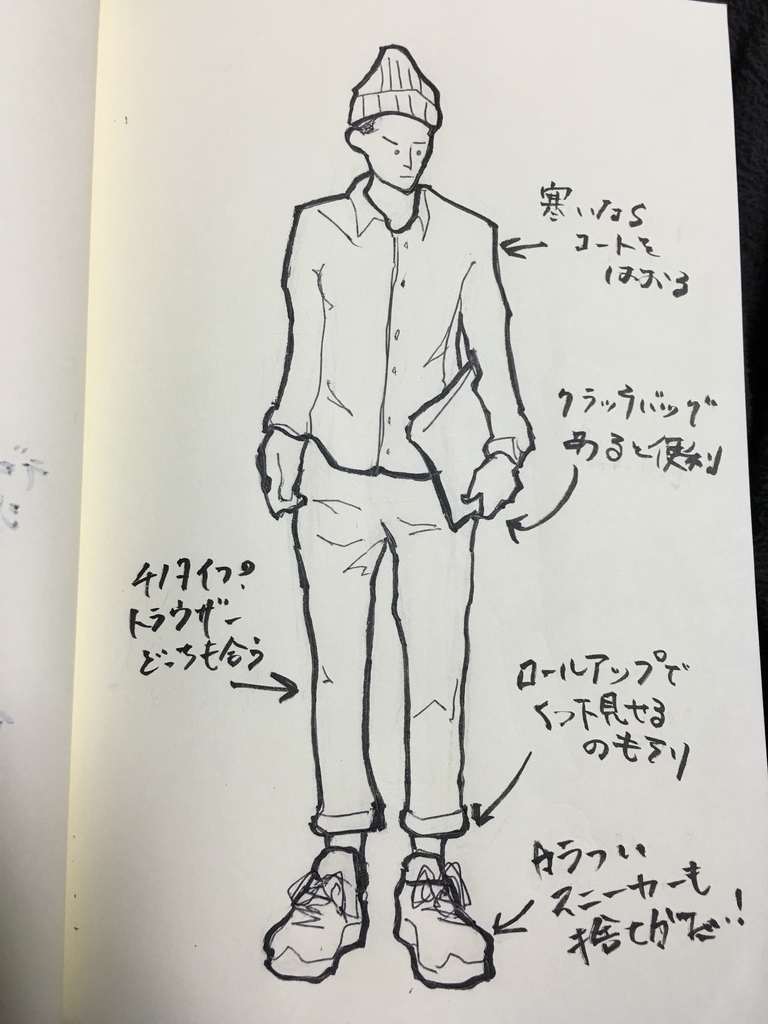 寒いなら
コートを
はおる
クラッチバッグ
あると便利
チノタイプ
トラウザー
どっちも合う
ロールアップで
くつ下見せる
のもアリ
スニーカーも